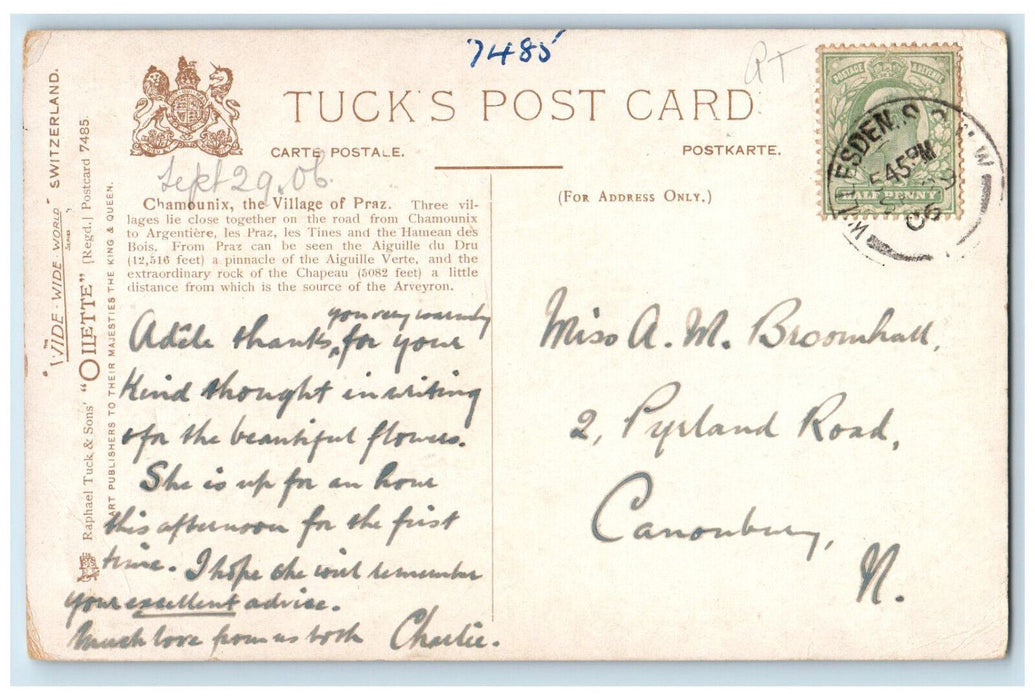 7485
TUCK'S POST CARD
CARTE POSTALE.
POSTKARTE.
Sept 29. 06.
(FOR ADDRESS ONLY.)
Chamounix, the Village of Praz. Three vil-
lages lie close together on the road from Chamounix
to Argentière, les Praz, les Tines and the Hamean des
Bois. From Praz can be seen the Aiguille du Dru
(12,516 feet) a pinnacle of the Aiguille Verte, and the
extraordinary rock of the Chapeau (5082 feet) a little
distance from which is the source of the Arveyron.
you very warmly
Adèle thanks, for your
kind thought in writing
& for the beautiful flowers.
She is up for an hour
this afternoon for the first
time. I hope she will remember
your excellent advice.
Much love from us both Charlie.
Miss A. M. Broomhall,
2, Pyrland Road,
Canonbury,
N.
THE "WIDE-WIDE-WORLD" SERIES SWITZERLAND.
Raphael Tuck & Sons' "OILETTE" [Regd.] Postcard 7485.
ART PUBLISHERS TO THEIR MAJESTIES THE KING & QUEEN.
POSTAGE REVENUE
HALFPENNY
WILLESDEN. S.O. N.W
5 45 PM
06